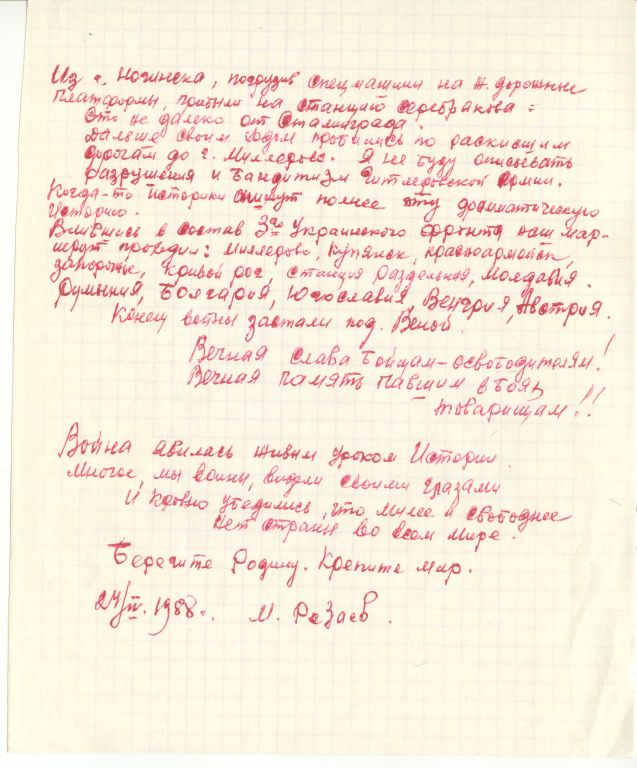 Из г. Ногинска, погрузив спецмашини на ж. дорожные
платформы, прибыли на станцию Серебракова =
Это не далеко от Сталинграда.
Дальше своим ходом пробились по раскисшим
дорогам до г. Миллерово. Я не буду описывать
разрушения и бандитизм гитлеровской армии.
Когда-то историки опишут полнее эту драматическую
Историю.
Влившись в состав 3го Украинского фронта наш мар-
шрут проходил: Миллерово, Купянск, Красноармейск,
Запорожье, Кривой рог станция Раздельная, Молдавия.
Румыния, Болгария, Югославия, Венгрия, Австрия.
Конец войны застали под. Веной.
Вечная слава Бойцам-освободителям!
Вечная память Павшим в боях
товарищам!!
Война авилась живым уроком Истории.
Многое, мы воины, видели своими глазами
И кровно убедились, что милее и свободнее
нет страны во всем мире.
Берегите Родину. Крепите мир.
24/II. 1988г. М. Резаев.